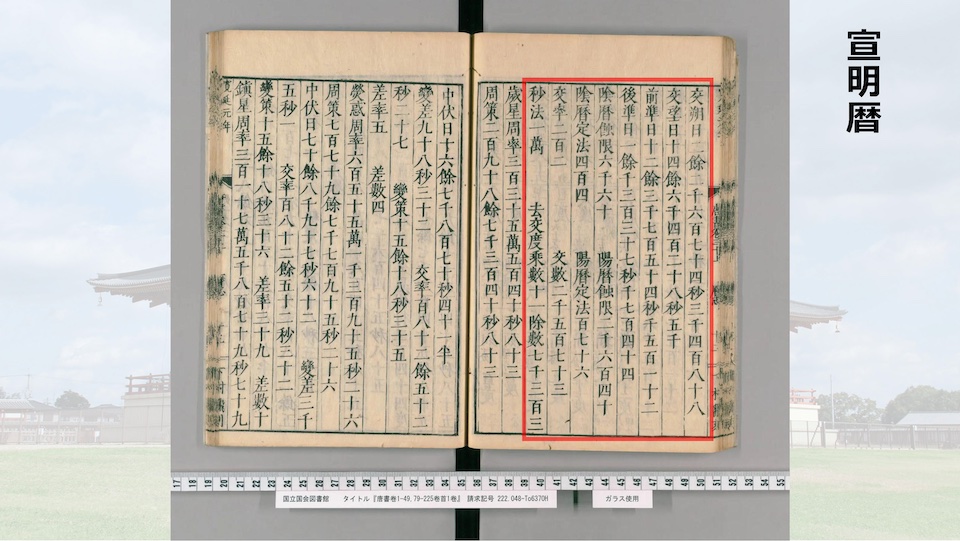 宣明暦
交朔日二餘二千六百七十四秒三千四百八十八
交望日十四餘六千四百二十八秒五千
前準日十二餘三千七百五十四秒千五百一十二
後準日一餘千三百三十七秒千七百四十四
陰曆蝕限六千六十　陽曆蝕限二千六百四十
陰曆定法四百四　陽曆定法百七十六
交率二百二　交數二千五百七十三
秒法一萬　去交度乘數十一除數七千三百三
歲星周率三百三十五萬五百四十秒八十三
周策三百九十八餘七千三百四十秒八十三
中伏日十六餘七千八百七十秒四十一半
變差九十八秒三十二　交率百八十二餘五十二
秒一十七　變策十五餘十八秒三十五
差率五　差數四
熒惑周率六百五十五萬一千三百九十五秒二十六
周策七百七十九餘七千七百九十五秒二十六
中伏日七十餘八千九十七秒六十三　變差三千
五秒一　交率百八十二餘五十二秒三十二
變策十五餘十八秒三十六　差率三十九　差數十
鎮星周率三百一十七萬五千八百七十九秒七十九
寛延元年
17 18 19 20 21 22 23 24 25 26 27 28 29 30 31 32 33 34 35 36 37 38 39 40 41 42 43 44 45 46 47 48 49 50 51 52 53 54 55
国立国会図書館　タイトル『唐書巻1-49,79-225巻首1巻』　請求記号 222.048-To6370H
ガラス使用